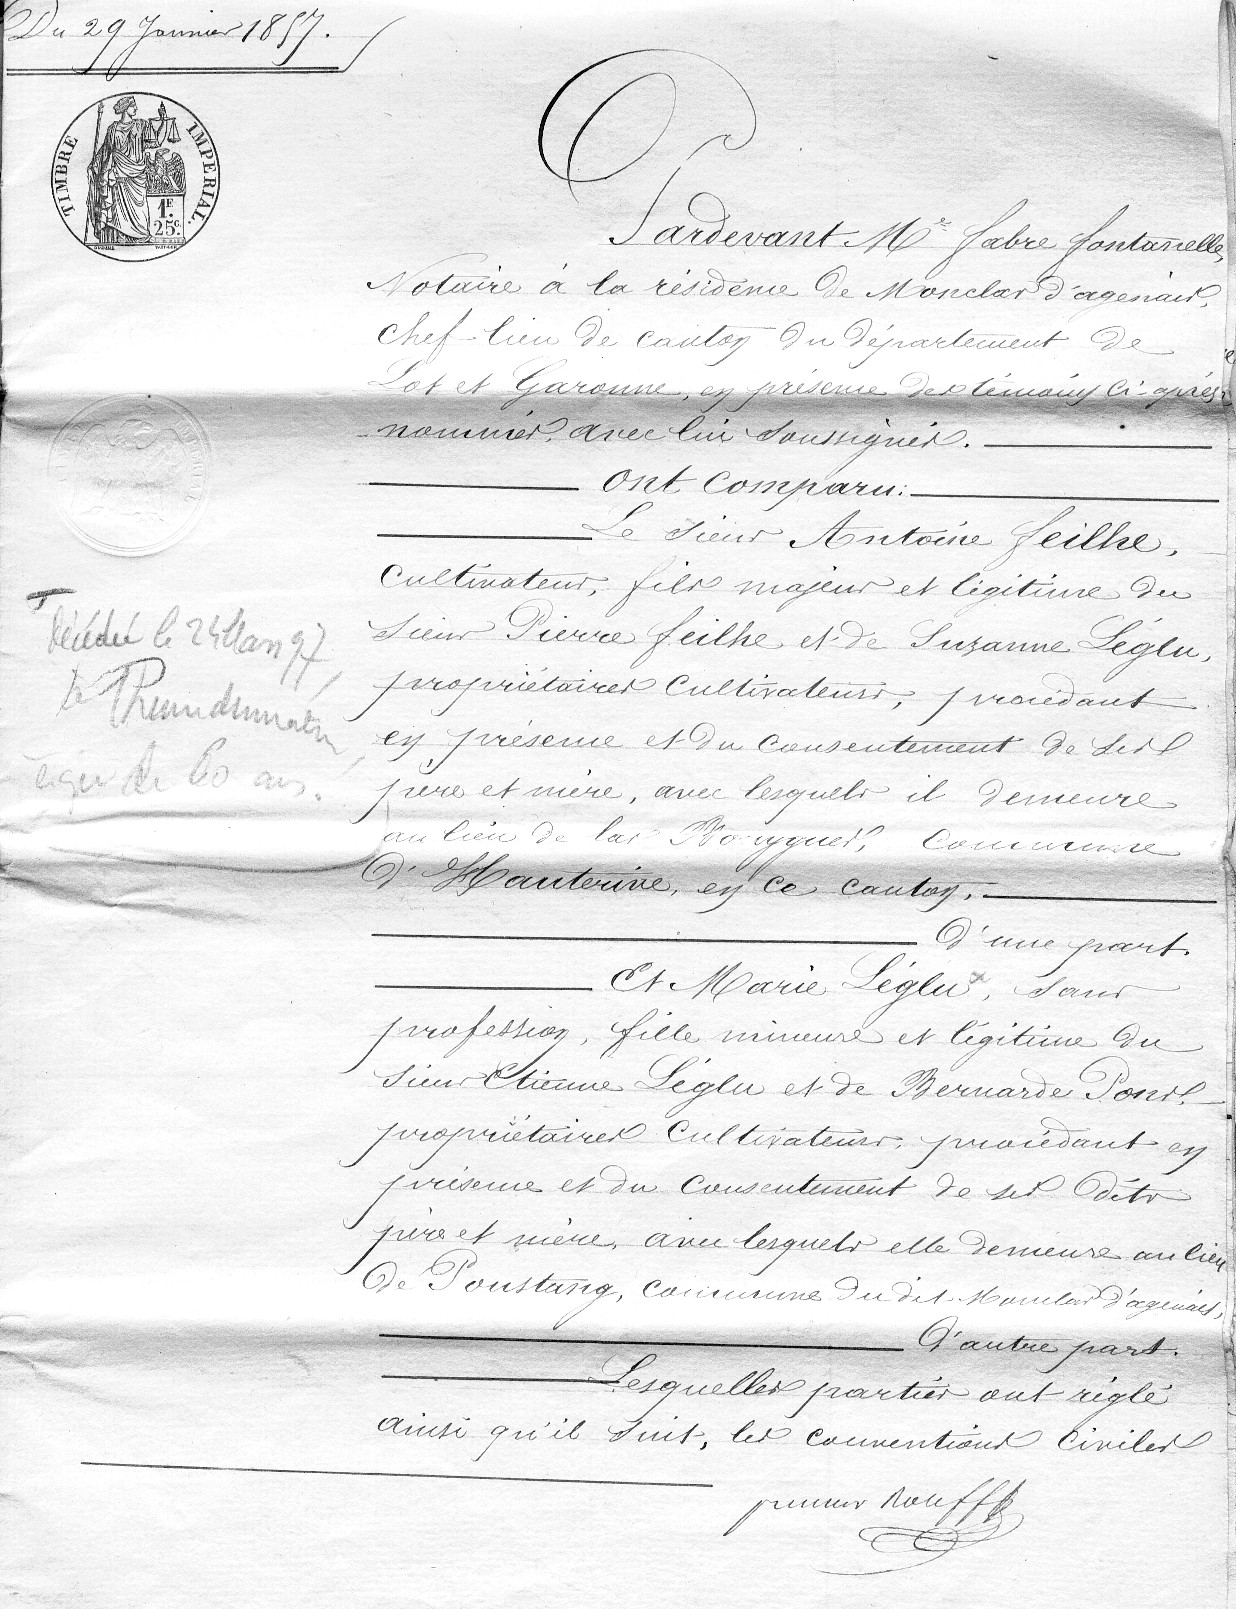 Du 29 Janvier 1857.
TIMBRE IMPERIAL.
1F.
25c.
Pardevant Me fabre fontanelle,
Notaire à la résidence de Monclar d'agenais,
chef-lieu de canton du département de
Lot et Garonne, en présence des témoins ci-après
nommés, avec lui soussignés.
ont comparu:
Le sieur Antoine feilhe,
cultivateur, fils majeur et légitime du
sieur Pierre feilhe et de Suzanne Léglu,
propriétaires cultivateurs, procédant
en présence et du consentement de ses
père et mère, avec lesquels il demeure
au lieu de las Bouygues, commune
d'Hauterive, en ce canton,
d'une part.
Et Marie Léglu x, sans
profession, fille mineure et légitime du
sieur Etienne Léglu et de Bernarde Pons,
propriétaires cultivateurs, procédant en
présence et du consentement de ses dits
père et mère, avec lesquels elle demeure au lieu
de Poustang, commune du dit Monclar d'agenais,
d'autre part.
Lesquelles parties ont réglé
ainsi qu'il suit, les conventions civiles
décédée le 24 Mars 97
âgée de 60 ans.
premier